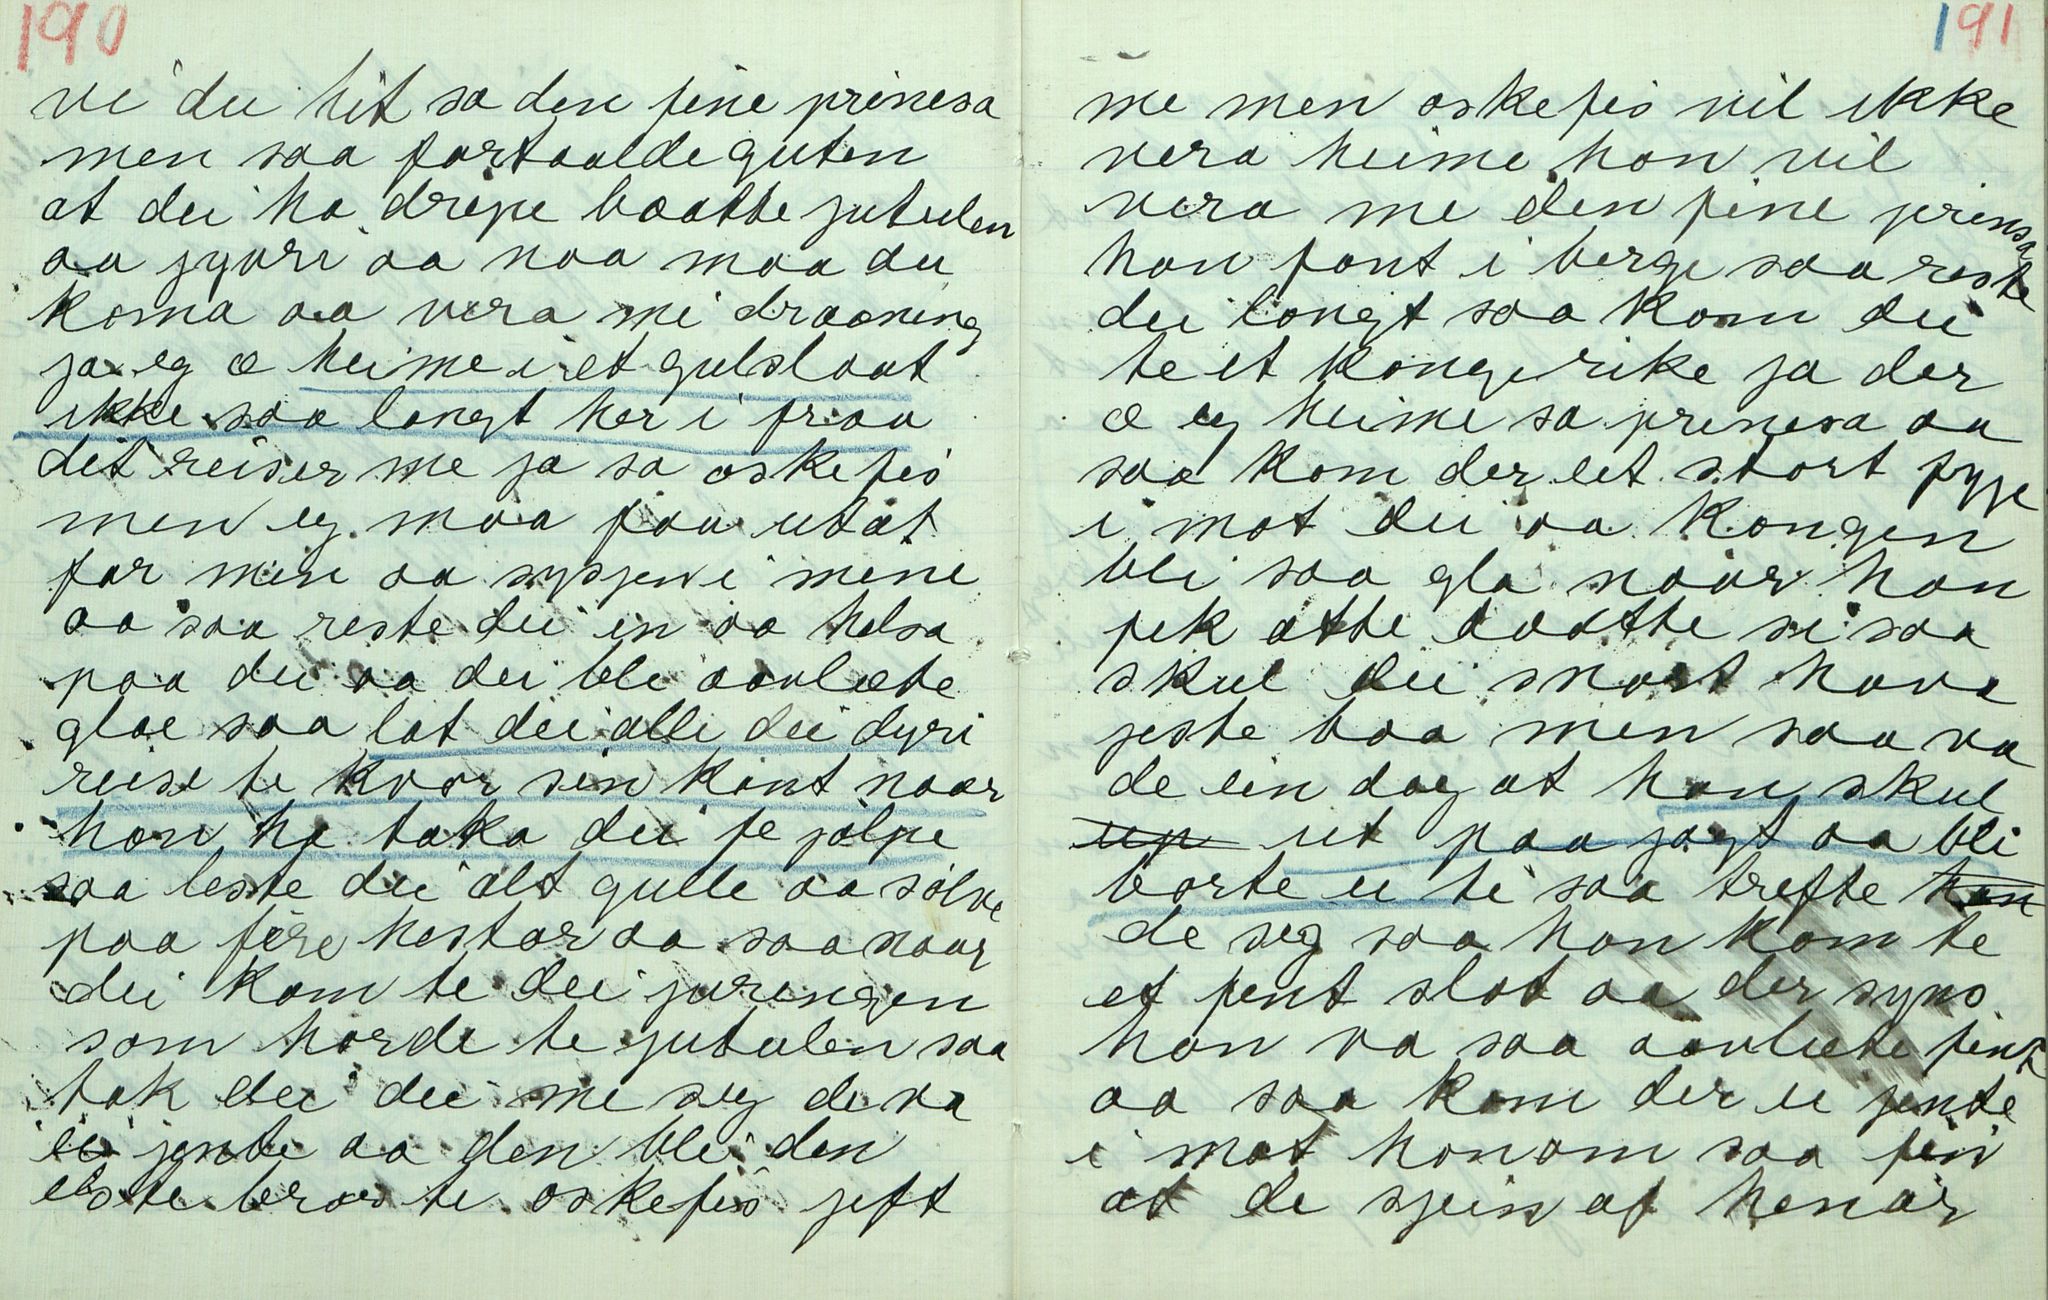 190
vi du hit sa den fine prinsesa
men saa fortaalde guten
at dei ha drepe baatte jutulen
aa jyvri aa naa maa du
koma aa vera mi draaning
ja eg æ heime i et gulslaat
ikke saa langt her i fraa
dit reiser me ja sa oskefis
men eg maa faa ut at
far min aa sysjen i mene
aa saa reiste dei in aa helsa
paa dei aa dei blei aavlæte
glae saa lat dei alle dei dyri
reise te kvar sin kant naar
han ha taka dei te jølpe
saa leste dei alt gulle aa sølve
paa fire hestar aa saa naar
dei kom te dei
som horde te jutulen saa
tok dei dei me seg de va
ei jente aa den blei den
elste broes te oskefis jeft
191
me men oskefis vil ikke
vera heime han vil
vera me den fine prinsesa
han fant i berge saa reste
dei langt saa kom dei
te et kongerike ja der
æ eg heime sa prinsesa aa
saa kom der eet stort fyje
i mot dei aa kongen
blei saa gla naar han
fek atte daatte si saa
skul dei snart hava
jeste baa men saa va
de ein dag at han skul
up ut paa jagt aa bli
borte ei ti saa trefte han
de seg saa han kom te
et pent slot aa der syns
han va saa aavlæte fint
aa saa kom der ei jente
i mot honom saa fin
at de sjein af henar